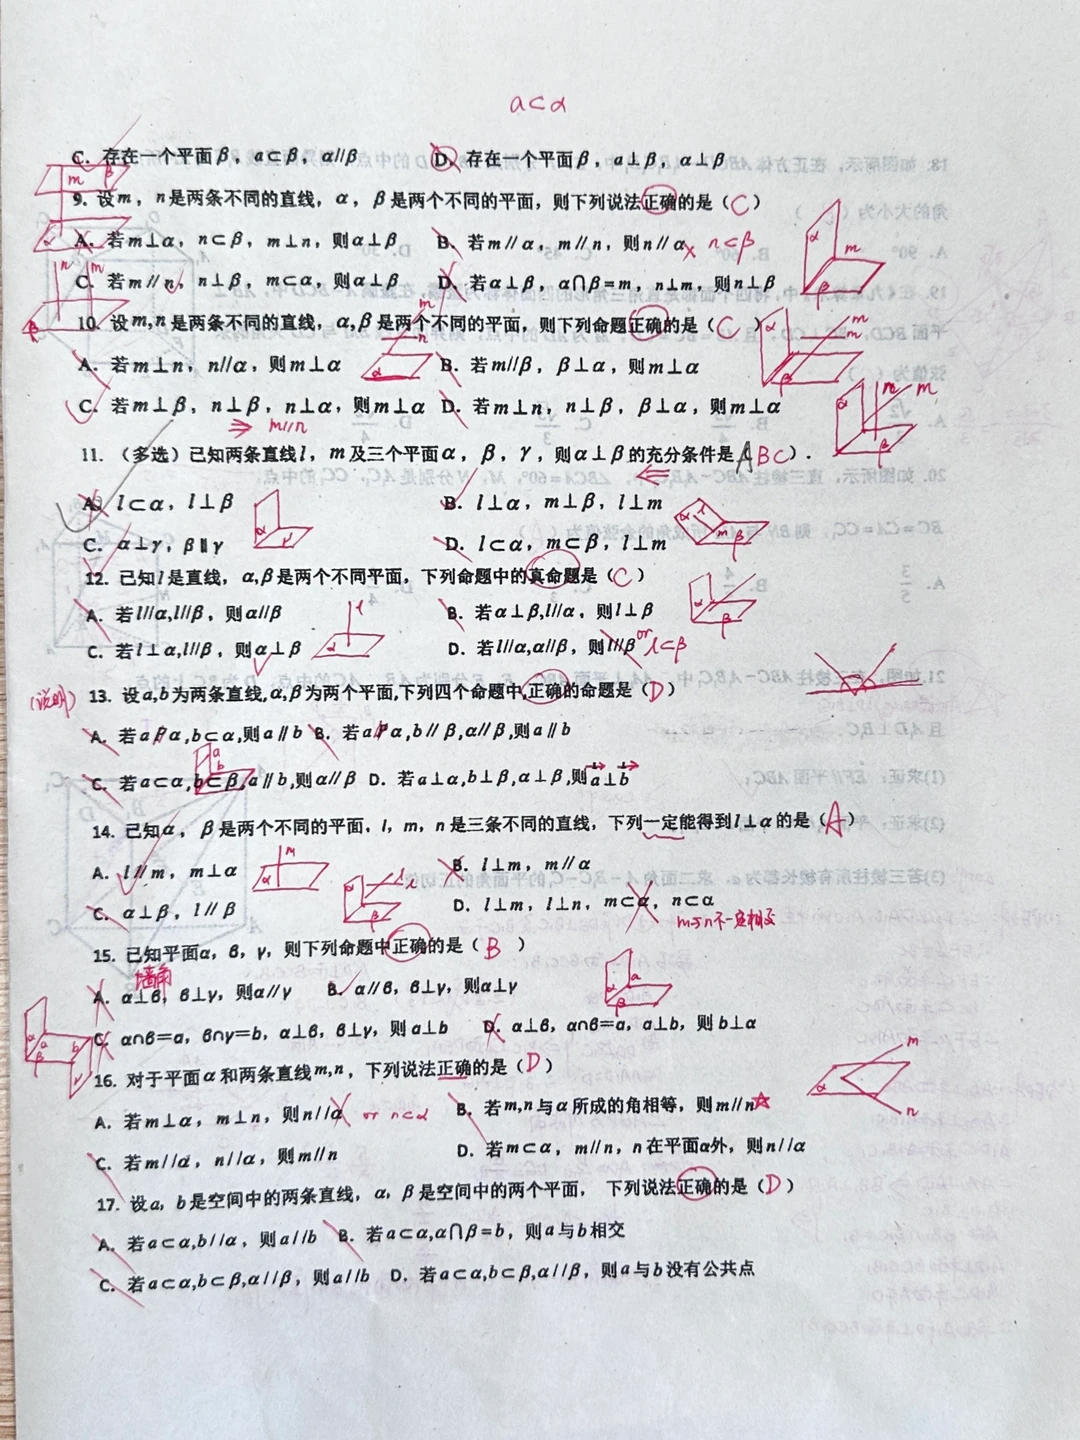 a⊂α
C. 存在一个平面β，a⊂β，α//β D. 存在一个平面β，a⊥β，α⊥β
9. 设m，n是两条不同的直线，α，β是两个不同的平面，则下列说法正确的是（C）
A. 若m⊥α，n⊂β，m⊥n，则α⊥β B. 若m//α，m//n，则n//α n⊂β
C. 若m//n，n⊥β，m⊂α，则α⊥β D. 若α⊥β，α∩β=m，n⊥m，则n⊥β
10. 设m,n是两条不同的直线，α,β是两个不同的平面，则下列命题正确的是（C）
A. 若m⊥n，n//α，则m⊥α B. 若m//β，β⊥α，则m⊥α
C. 若m⊥β，n⊥β，n⊥α，则m⊥α D. 若m⊥n，n⊥β，β⊥α，则m⊥α
⇒ m//n
11. （多选）已知两条直线l，m及三个平面α，β，γ，则α⊥β的充分条件是（ABC）.
A. l⊂α，l⊥β B. l⊥α，m⊥β，l⊥m
C. α⊥γ，β∥γ D. l⊂α，m⊂β，l⊥m
12. 已知l是直线，α,β是两个不同平面，下列命题中的真命题是（C）
A. 若l//α,l//β，则α//β B. 若α⊥β,l//α，则l⊥β
C. 若l⊥α,l//β，则α⊥β D. 若l//α,α//β，则l//β or l⊂β
(说明) 13. 设a,b为两条直线,α,β为两个平面,下列四个命题中,正确的命题是（D）
A. 若a∥α,b⊂α,则a∥b B. 若a∥α,b∥β,α∥β,则a∥b
C. 若a⊂α,b⊂β,a∥b,则α∥β D. 若a⊥α,b⊥β,α⊥β,则a⊥b
14. 已知α，β是两个不同的平面，l，m，n是三条不同的直线，下列一定能得到l⊥α的是（A）
A. l∥m，m⊥α B. l⊥m，m∥α
C. α⊥β，l∥β D. l⊥m，l⊥n，m⊂α，n⊂α
m与n不一定相交
15. 已知平面α，β，γ，则下列命题中正确的是（B）
墙角
A. α⊥β，β⊥γ，则α//γ B. α//β，β⊥γ，则α⊥γ
C. α∩β=a，β∩γ=b，α⊥β，β⊥γ，则a⊥b D. α⊥β，α∩β=a，a⊥b，则b⊥α
16. 对于平面α和两条直线m,n，下列说法正确的是（D）
A. 若m⊥α，m⊥n，则n//α or n⊂α B. 若m,n与α所成的角相等，则m//n
C. 若m//α，n//α，则m//n D. 若m⊂α，m//n，n在平面α外，则n//α
17. 设a，b是空间中的两条直线，α，β是空间中的两个平面， 下列说法正确的是（D）
A. 若a⊂α,b//α，则a//b B. 若a⊂α,α∩β=b，则a与b相交
C. 若a⊂α,b⊂β,α//β，则a//b D. 若a⊂α,b⊂β,α//β，则a与b没有公共点